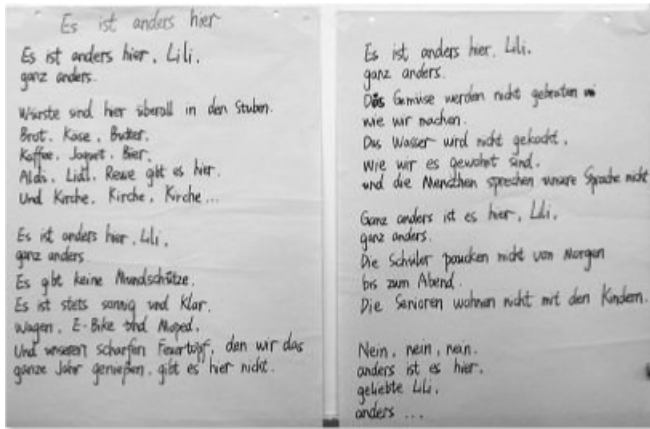 Es ist anders hier
Es ist anders hier, Lili,
ganz anders.
Würste sind hier überall in den Stuben.
Brot, Käse, Butter,
Kaffee, Jogurt, Bier,
Aldi, Lidl, Rewe gibt es hier.
Und Kirche, Kirche, Kirche...
Es ist anders hier, Lili,
ganz anders.
Es gibt keine Mundschütze.
Es ist stets sonnig und klar.
Wagen, E-Bike und Moped,
Und unseren scharfen Feuertopf, den wir das
ganze Jahr genießen, gibt es hier nicht.
Es ist anders hier, Lili,
ganz anders.
Das Gemüse werden nicht gebraten
wie wir machen.
Das Wasser wird nicht gekocht,
Wie wir es gewohnt sind,
und die Menschen sprechen unsere Sprache nicht
Ganz anders ist es hier, Lili,
ganz anders.
Die Schüler pauken nicht von Morgen
bis zum Abend.
Die Senioren wohnen nicht mit den Kindern.
Nein, nein, nein.
anders ist es hier,
geliebte Lili,
anders ...